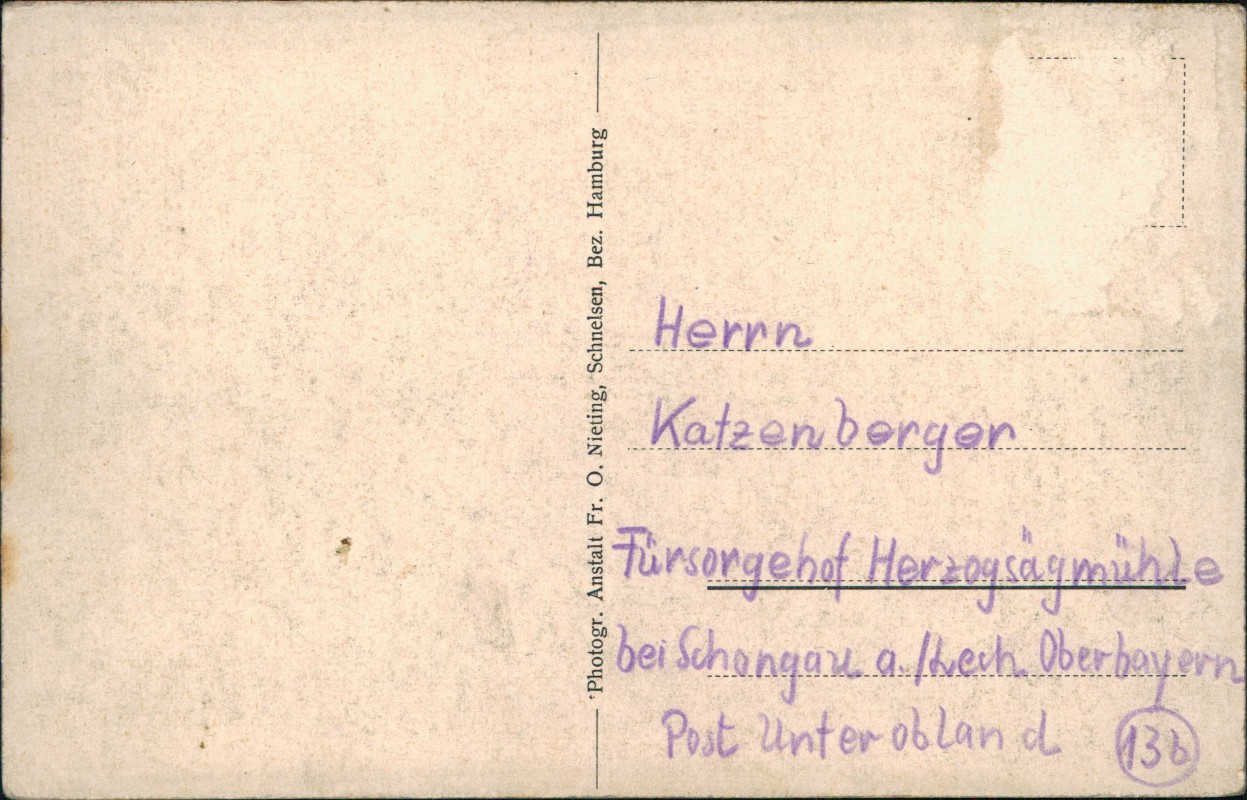 Photogr. Anstalt Fr. O. Nieting, Schnelsen, Bez. Hamburg
Herrn
Katzenberger
Fürsorgehof Herzogsägmühle
bei Schongau a./Lech Oberbayern
Post Unterobland 13b